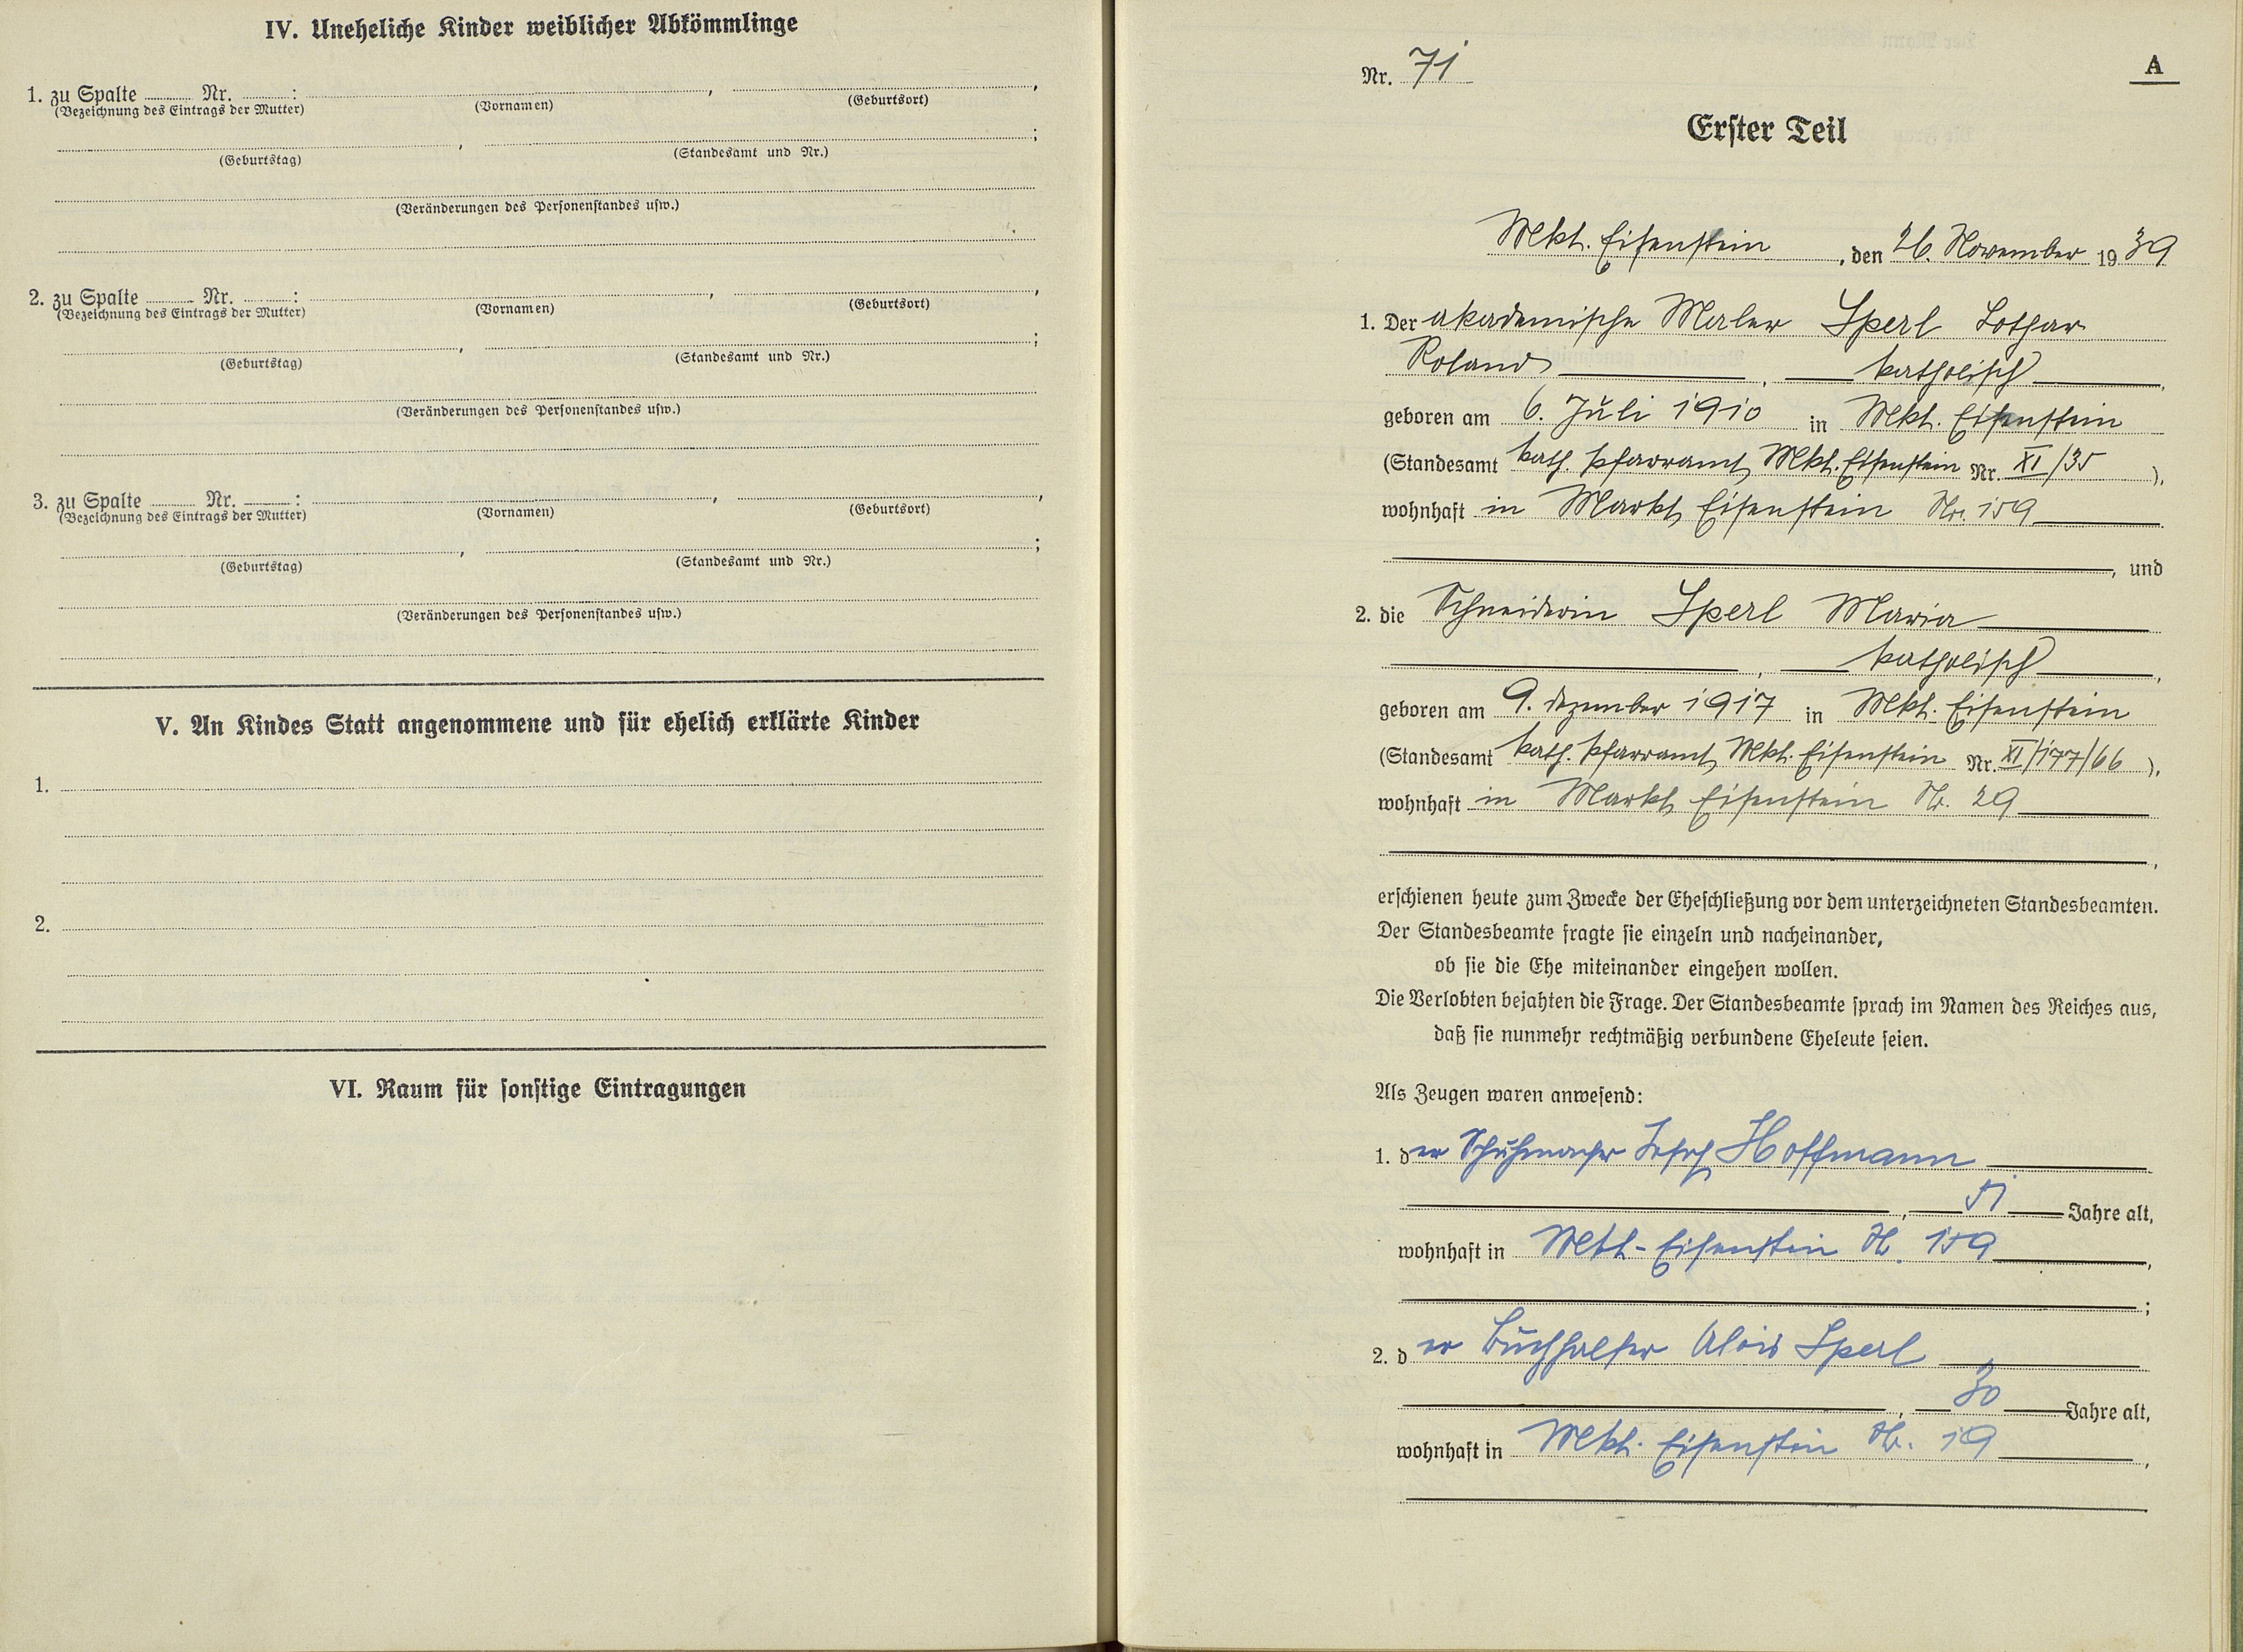 IV. Uneheliche Kinder weiblicher Abkömmlinge
1. zu Spalte ........ Nr. ........ : ........ , ........ ,
(Bezeichnung des Eintrags der Mutter) (Vornamen) (Geburtsort)
........ , ........ ;
(Geburtstag) (Standesamt und Nr.)
(Veränderungen des Personenstandes usw.)
2. zu Spalte ........ Nr. ........ : ........ , ........ ,
(Bezeichnung des Eintrags der Mutter) (Vornamen) (Geburtsort)
........ , ........ ;
(Geburtstag) (Standesamt und Nr.)
(Veränderungen des Personenstandes usw.)
3. zu Spalte ........ Nr. ........ : ........ , ........ ,
(Bezeichnung des Eintrags der Mutter) (Vornamen) (Geburtsort)
........ , ........ ;
(Geburtstag) (Standesamt und Nr.)
(Veränderungen des Personenstandes usw.)
V. An Kindes Statt angenommene und für ehelich erklärte Kinder
1.
2.
VI. Raum für sonstige Eintragungen
Nr. 71
A
Erster Teil
Mkt. Eisenstein, den 26. November 1939
1. Der akademische Maler Sperl Lothar
Roland, katholisch,
geboren am 6. Juli 1910 in Mkt. Eisenstein
(Standesamt kath. Pfarramt Mkt. Eisenstein Nr. XI/35),
wohnhaft in Markt Eisenstein Nr. 159
, und
2. die Schneiderin Sperl Maria
, katholisch,
geboren am 9. Dezember 1917 in Mkt. Eisenstein
(Standesamt kath. Pfarramt Mkt. Eisenstein Nr. XI/177/66),
wohnhaft in Markt Eisenstein Nr. 29
,
erschienen heute zum Zwecke der Eheschließung vor dem unterzeichneten Standesbeamten.
Der Standesbeamte fragte sie einzeln und nacheinander,
ob sie die Ehe miteinander eingehen wollen.
Die Verlobten bejahten die Frage. Der Standesbeamte sprach im Namen des Reiches aus,
daß sie nunmehr rechtmäßig verbundene Eheleute seien.
Als Zeugen waren anwesend:
1. der Schuhmacher Josef Hoffmann
, 51 Jahre alt,
wohnhaft in Mkt-Eisenstein N. 159,
;
2. der Buchhalter Alois Sperl
, 30 Jahre alt,
wohnhaft in Mkt. Eisenstein Nr. 19,